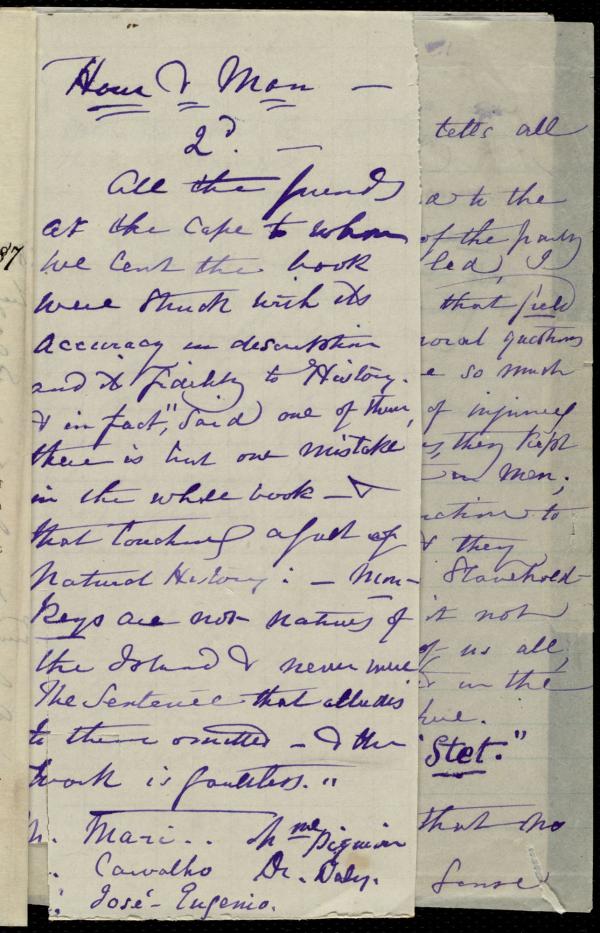 Hour & Man —
2d. —
All the friends
at the Cape to whom
we lent the book
were struck with its
accuracy in description
and its fidelity to History.
& in fact", said one of them,
there is but one mistake
in the whole book — &
that touching a fact of
Natural History: — Mon-
keys are not natives of
the Island & never were
The Sentence that alludes
to them omitted — & the
work is faultless."
M. Mari.. Mme
.. Carvalho Dr. Daly.
.. José-Eugenio.
87
tells all
to the
of the party
led, I
that field
moral questions
so much
of injuring
they kept
men;
to
& they
Slavehold-
it not
of us all,
in the
"Stet."
that no
Sense